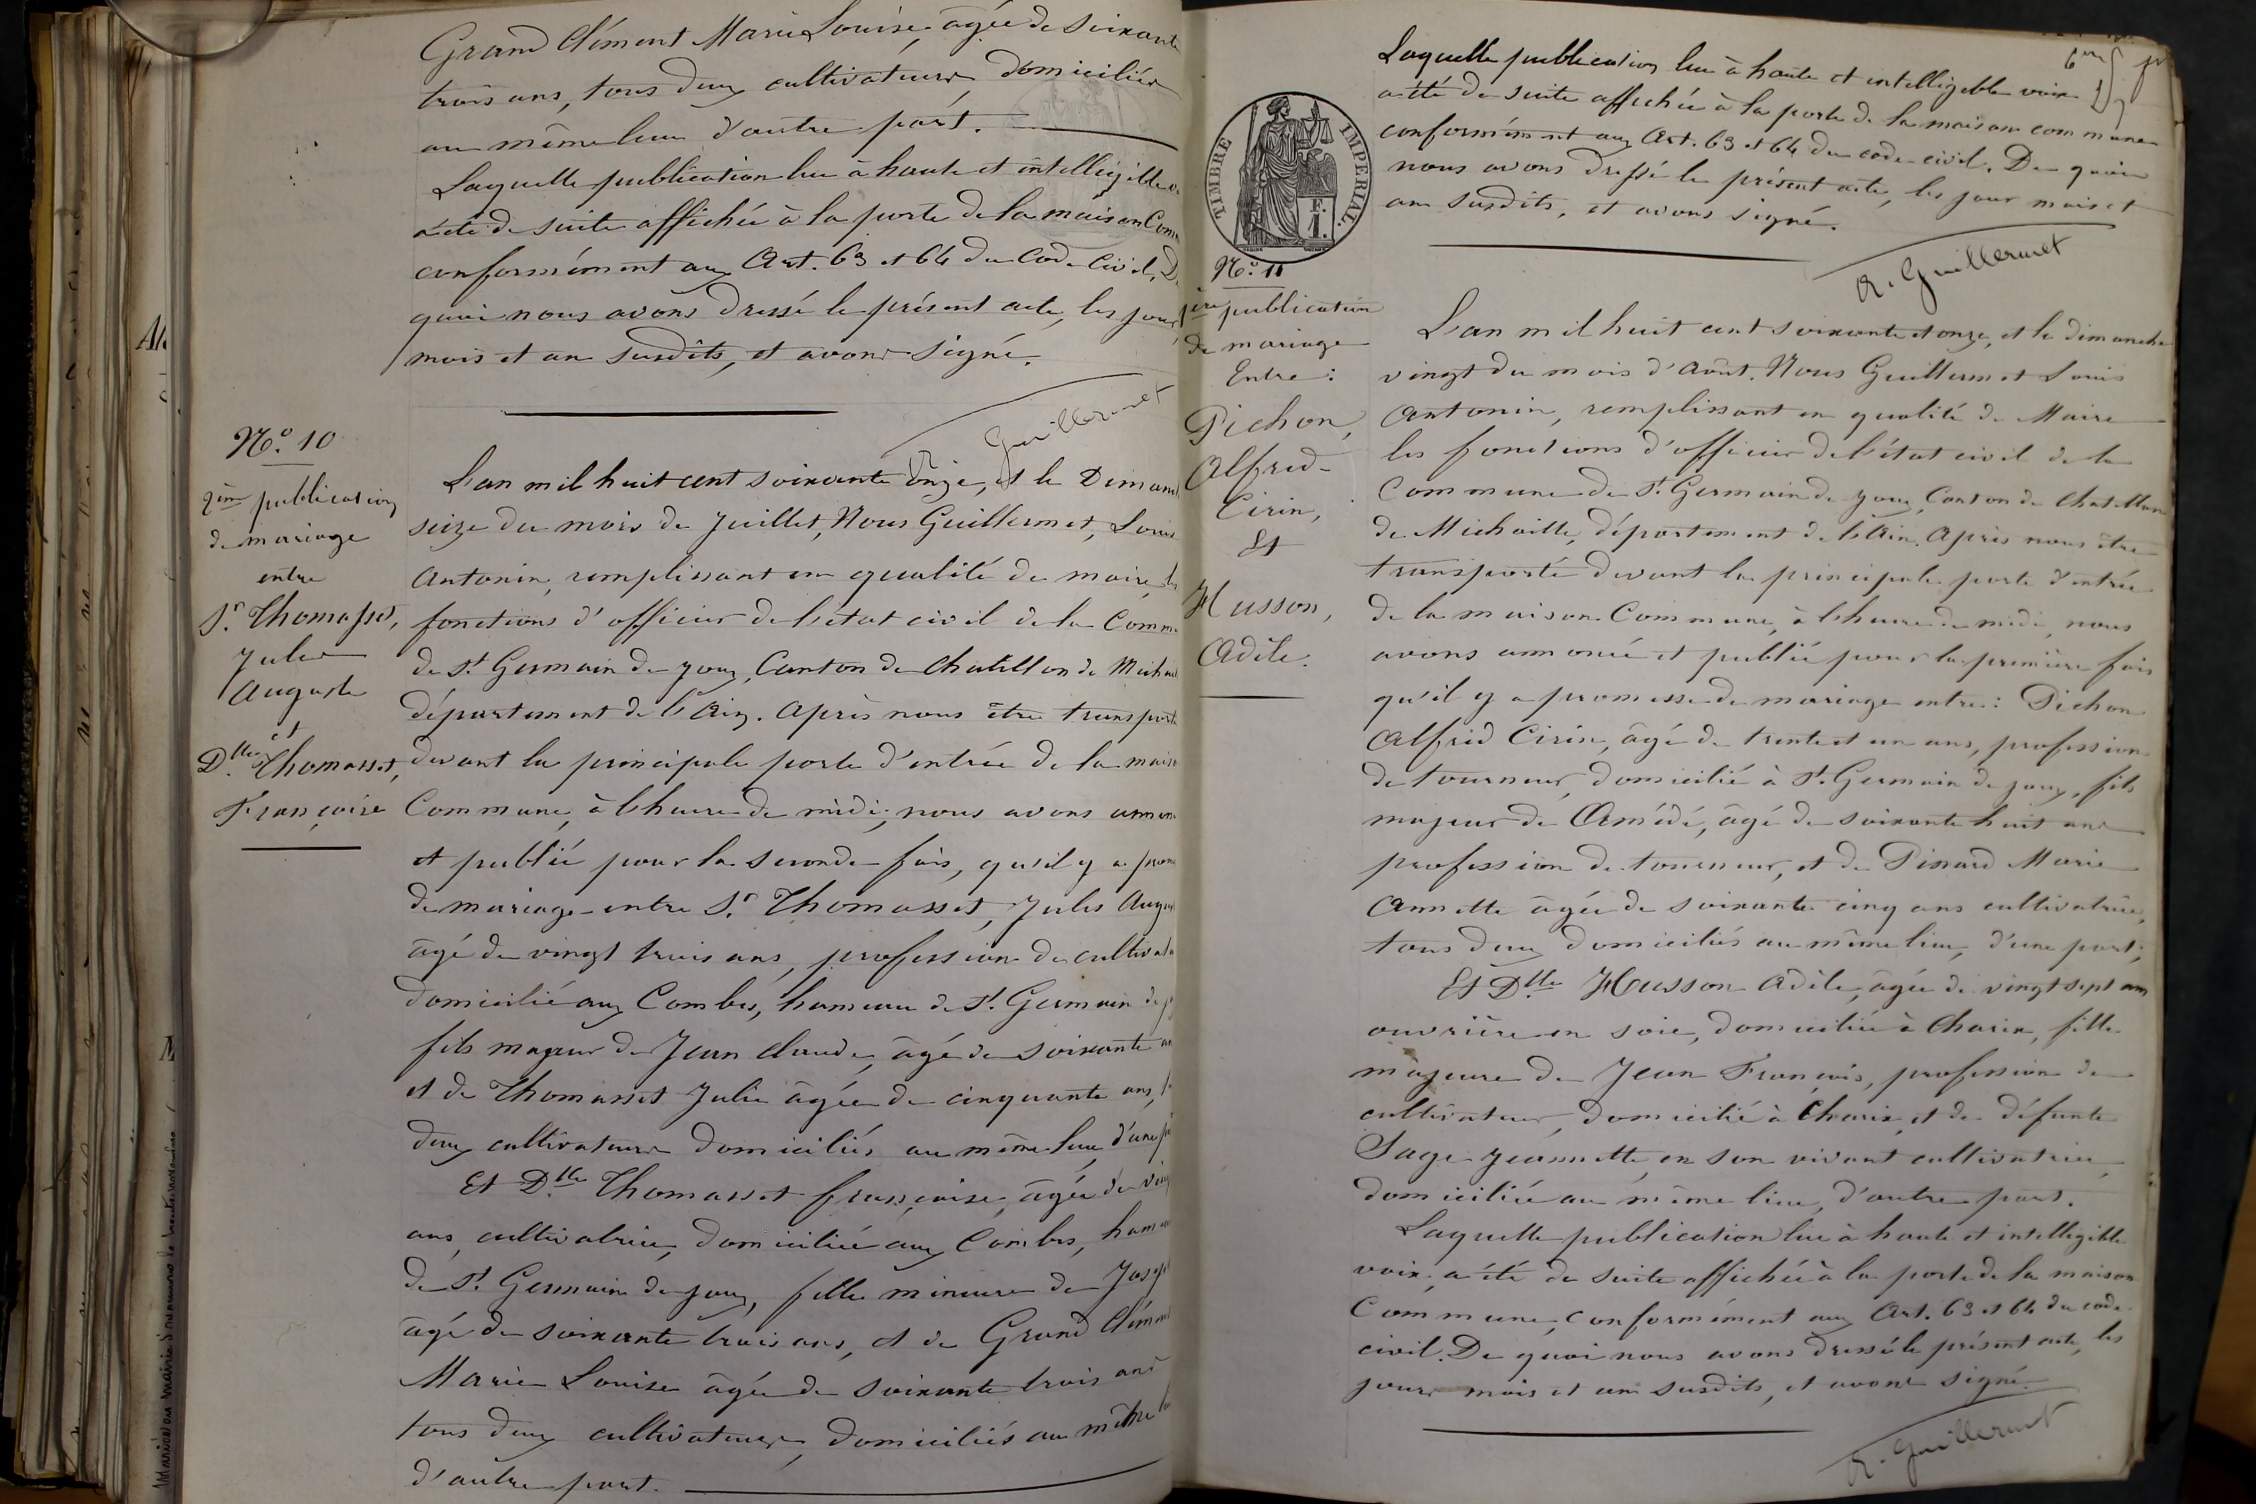 Grand Clément Marie Louise, âgée de soixante
trois ans, tous deux cultivateurs, domiciliés
au même lieu d'autre part.
Laquelle publication lue à haute et intelligible
a été de suite affichée à la porte de la maison Com
conformément aux Art. 63 et 64 du Code Civil. D
quoi nous avons dressé le présent acte, les jour
mois et an susdits, et avons signé.
Guillermet
N.º 10
2ème publication
de mariage
entre
Sr. Thomasset,
Jules
Auguste
et
Dlle Thomasset,
Françoise
L'an mil huit cent soixante onze, et le Diman
seize du mois de Juillet, Nous Guillermet, Louis
Antonin, remplissant en qualité de maire, les
fonctions d'officier de l'état civil de la Comm
de St. Germain de Joux, Canton de Chatillon de Micha
département de l'Ain. Après nous être transport
devant la principale porte d'entrée de la mais
Commune, à l'heure de midi, nous avons annon
et publié pour la seconde fois, qu'il y a prom
de mariage entre Sr. Thomasset, Jules Augu
âgé de vingt trois ans, profession de cultivat
domicilié aux Combes, hameau de St. Germain de j
fils majeur de Jean Claude, âgé de soixante an
et de Thomasset Julie âgée de cinquante ans, t
deux cultivateurs domiciliés au même lieu, d'une p
Et Dlle Thomasset Françoise, âgée de ving
ans, cultivatrice, domiciliée aux Combes, ham
de St. Germain de Joux, fille mineure de Josep
âgé de soixante trois ans, et de Grand Clémen
Marie Louise âgée de soixante trois ans
tous deux cultivateurs, domiciliés au même
d'autre part.
Laquelle publication lue à haute et intelligible voix
a été de suite affichée à la porte de la maison commune
conformément aux Art. 63 et 64 du code civil. De quoi
nous avons dressé le présent acte, les jour mois et
an susdits, et avons signé.
A. Guillermet
TIMBRE IMPERIAL.
F.
1.
N.º 11
1ère publication
de mariage
Entre:
Pichon,
Alfred
Cirin,
Et
Husson,
Adèle.
L'an mil huit cent soixante et onze, et le dimanche
vingt du mois d'Août. Nous Guillermet Louis
Antonin, remplissant en qualité de Maire
les fonctions d'officier de l'état civil de la
Commune de St. Germain de Joux, Canton de Chatillon
de Michaille, département de l'Ain. Après nous être
transporté devant la principale porte d'entrée
de la maison Commune, à l'heure de midi, nous
avons annoncé et publié pour la première fois
qu'il y a promesse de mariage entre: Pichon
Alfred Cirin, âgé de trente et un ans, profession
de tourneur, domicilié à St. Germain de Joux, fils
majeur de Amédé, âgé de soixante huit ans
profession de tourneur, et de Pinard Marie
Annette âgée de soixante cinq ans cultivatrice,
tous deux domiciliés au même lieu, d'une part;
Et Dlle Husson Adèle, âgée de vingt sept ans
ouvrière en soie, domiciliée à Charix, fille
majeure de Jean François, profession de
cultivateur, domicilié à Charix, et de défunte
Sage Jeannette, en son vivant cultivatrice,
domiciliée au même lieu, d'autre part.
Laquelle publication lue à haute et intelligible
voix, a été de suite affichée à la porte de la maison
Commune, conformément aux Art. 63 et 64 du code
civil. De quoi nous avons dressé le présent acte, les
jour mois et an susdits, et avons signé.
A. Guillermet